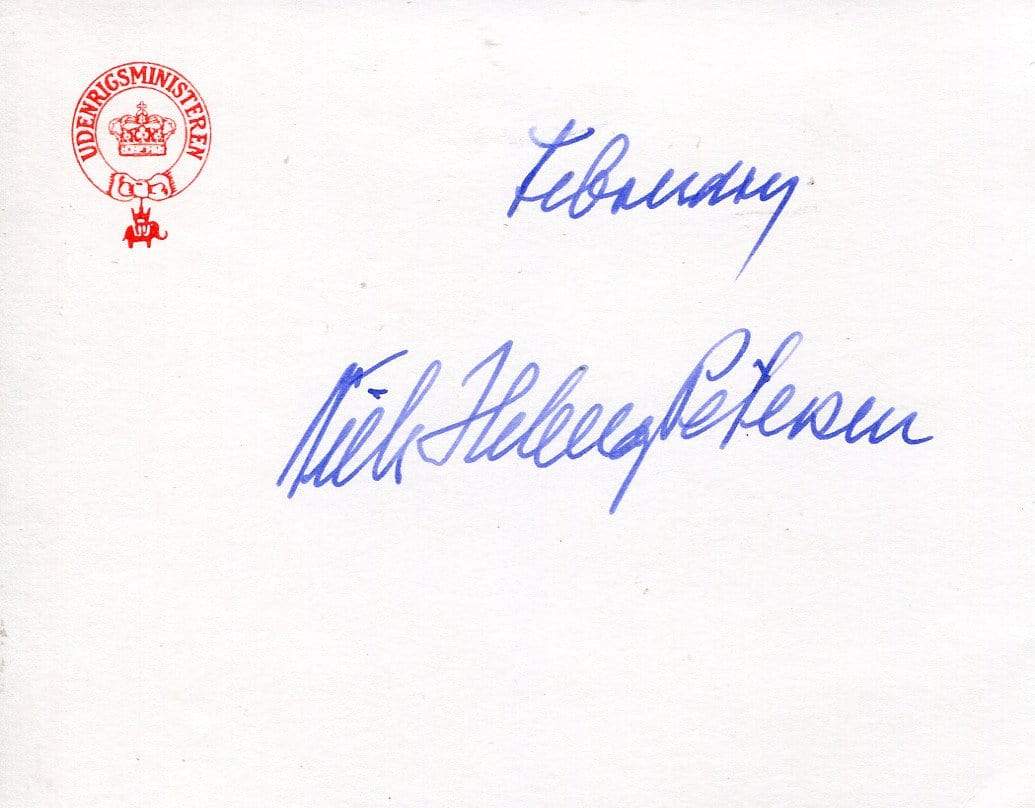 UDENRIGSMINISTEREN
February
Niels Helveg Petersen